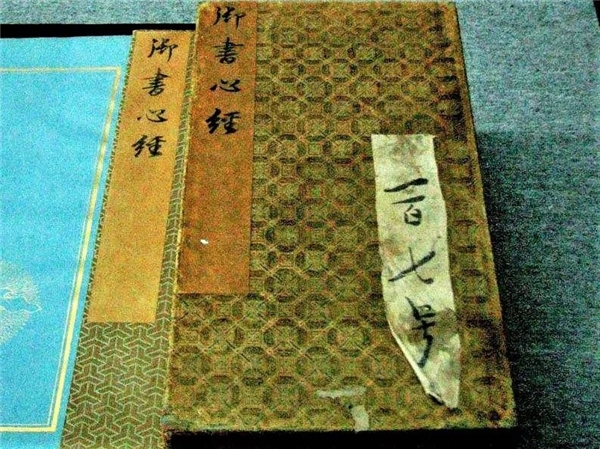 御書心經
御書心經
一百七号